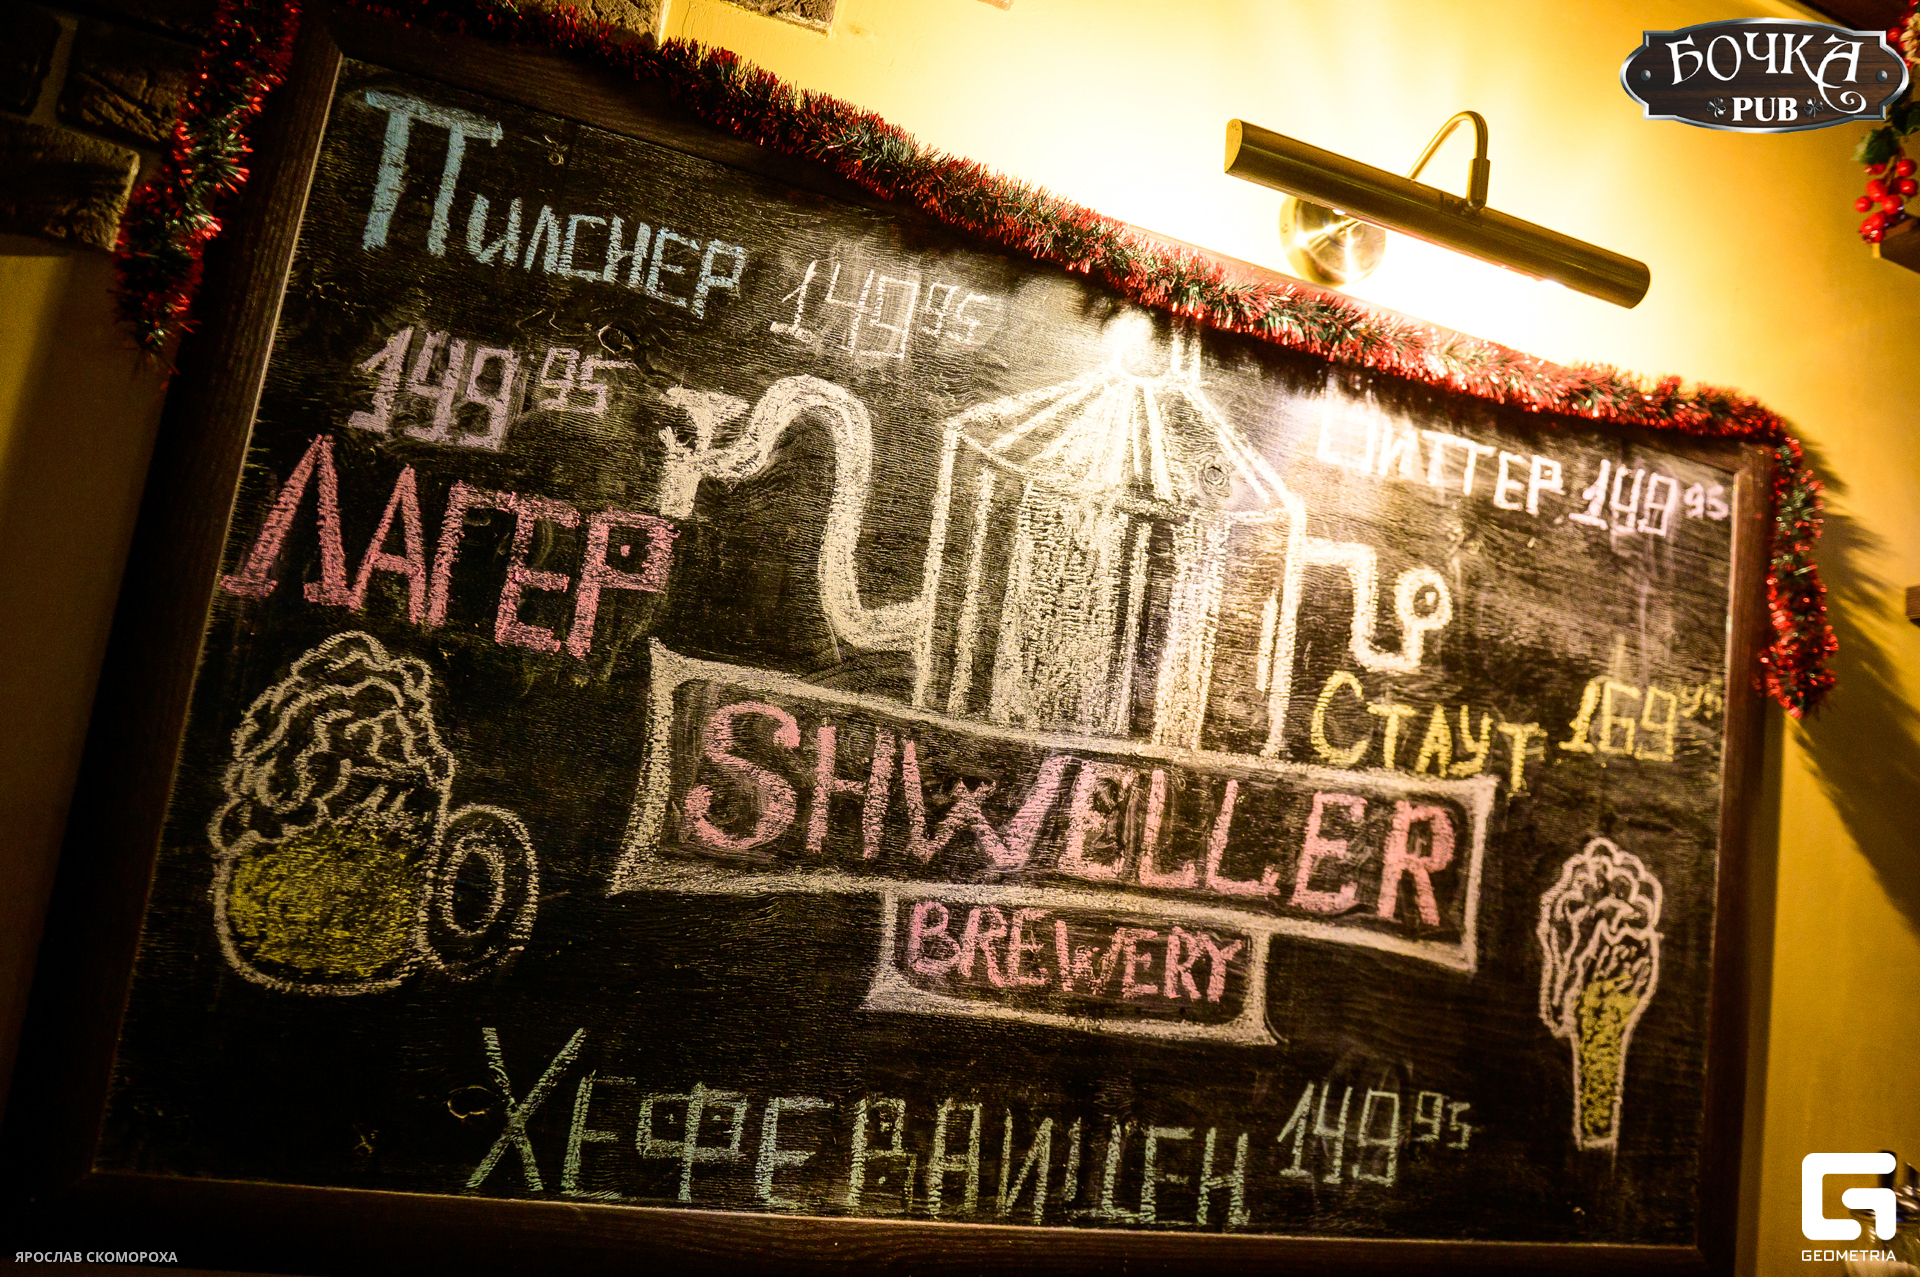 БОЧКА
PUB
Пилснер 149 95
149 95
Лагер
Биттер 149 95
Стаут 169 95
SHWELLER
BREWERY
Хефевайцен 149 95
ЯРОСЛАВ СКОМОРОХА
GEOMETRIA